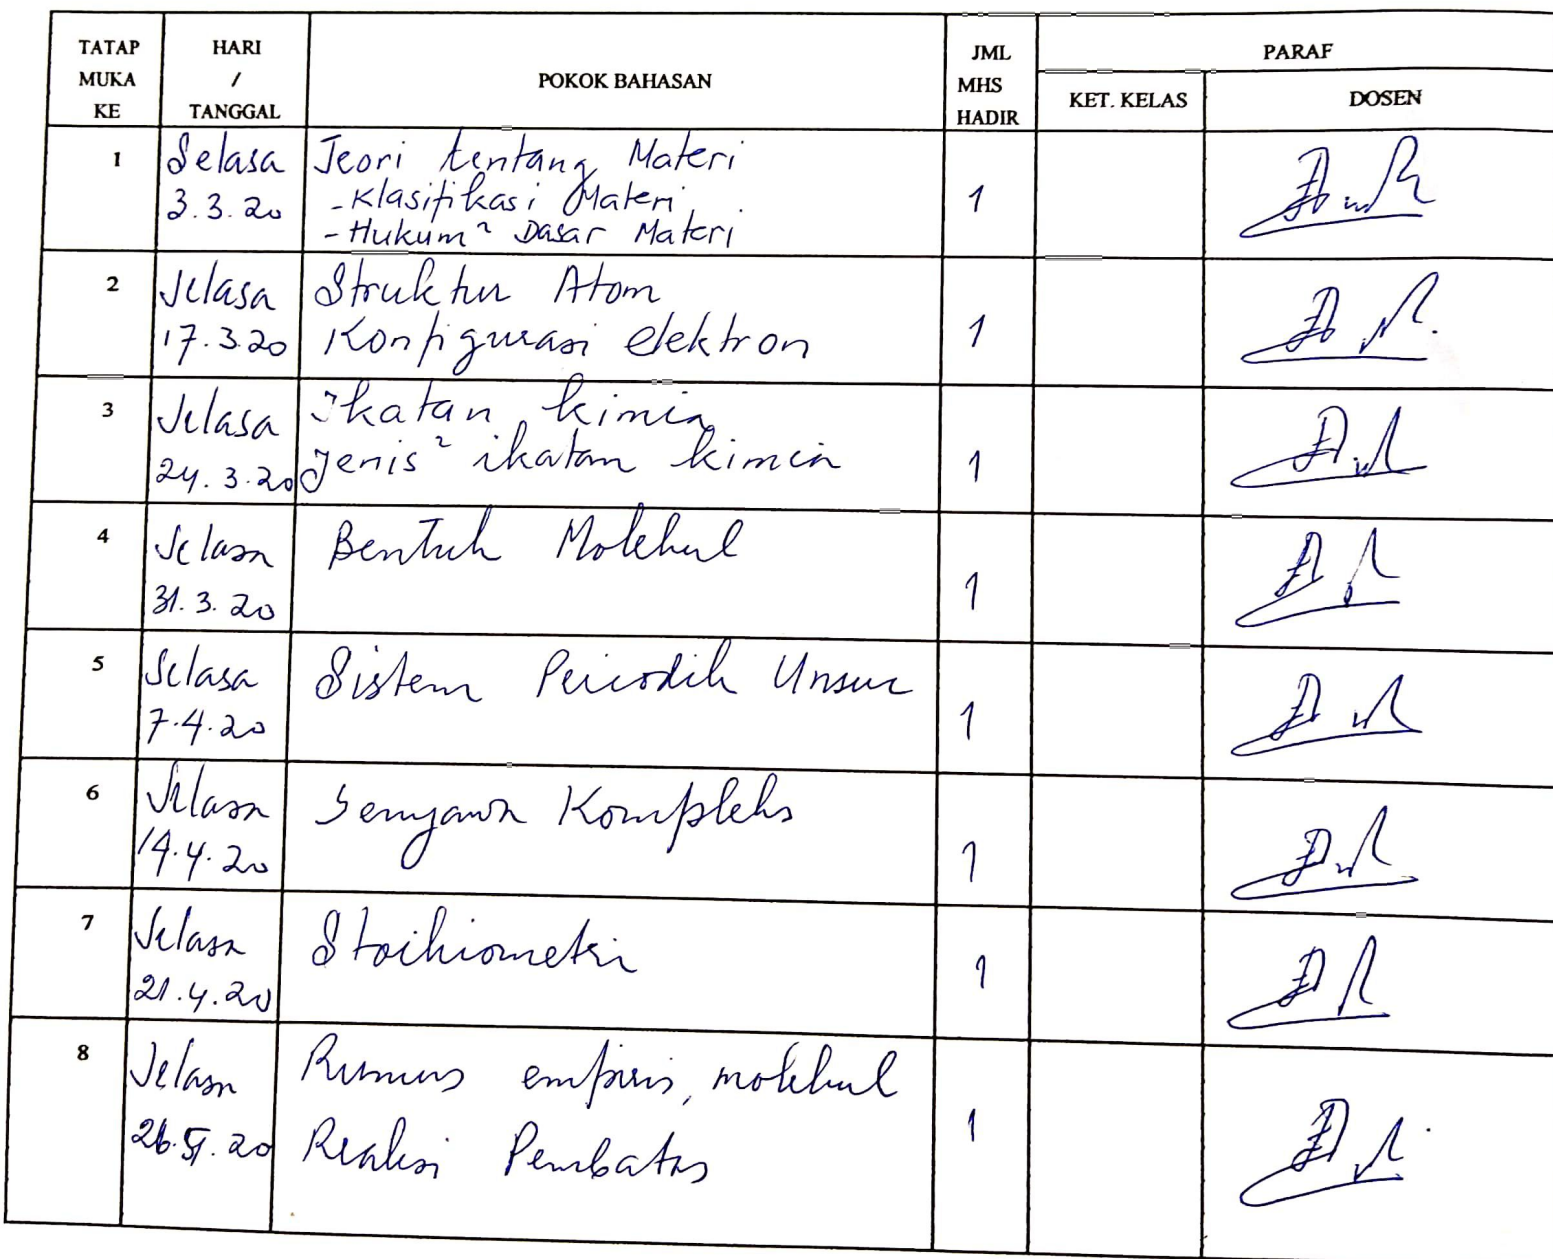 TATAP MUKA KE
HARI / TANGGAL
POKOK BAHASAN
JML MHS HADIR
PARAF
KET. KELAS
DOSEN
1
Selasa
3.3.20
Teori tentang Materi
- Klasifikasi Materi
- Hukum² Dasar Materi
1
2
Selasa
17.3.20
Struktur Atom
Konfigurasi elektron
1
3
Selasa
24.3.20
Ikatan kimia
Jenis² ikatan kimia
1
4
Selasa
31.3.20
Bentuk Molekul
1
5
Selasa
7.4.20
Sistem Periodik Unsur
1
6
Selasa
14.4.20
Senyawa Kompleks
1
7
Selasa
21.4.20
Stoikiometri
1
8
Selasa
26.5.20
Rumus empiris, molekul
Reaksi Pembatas
1